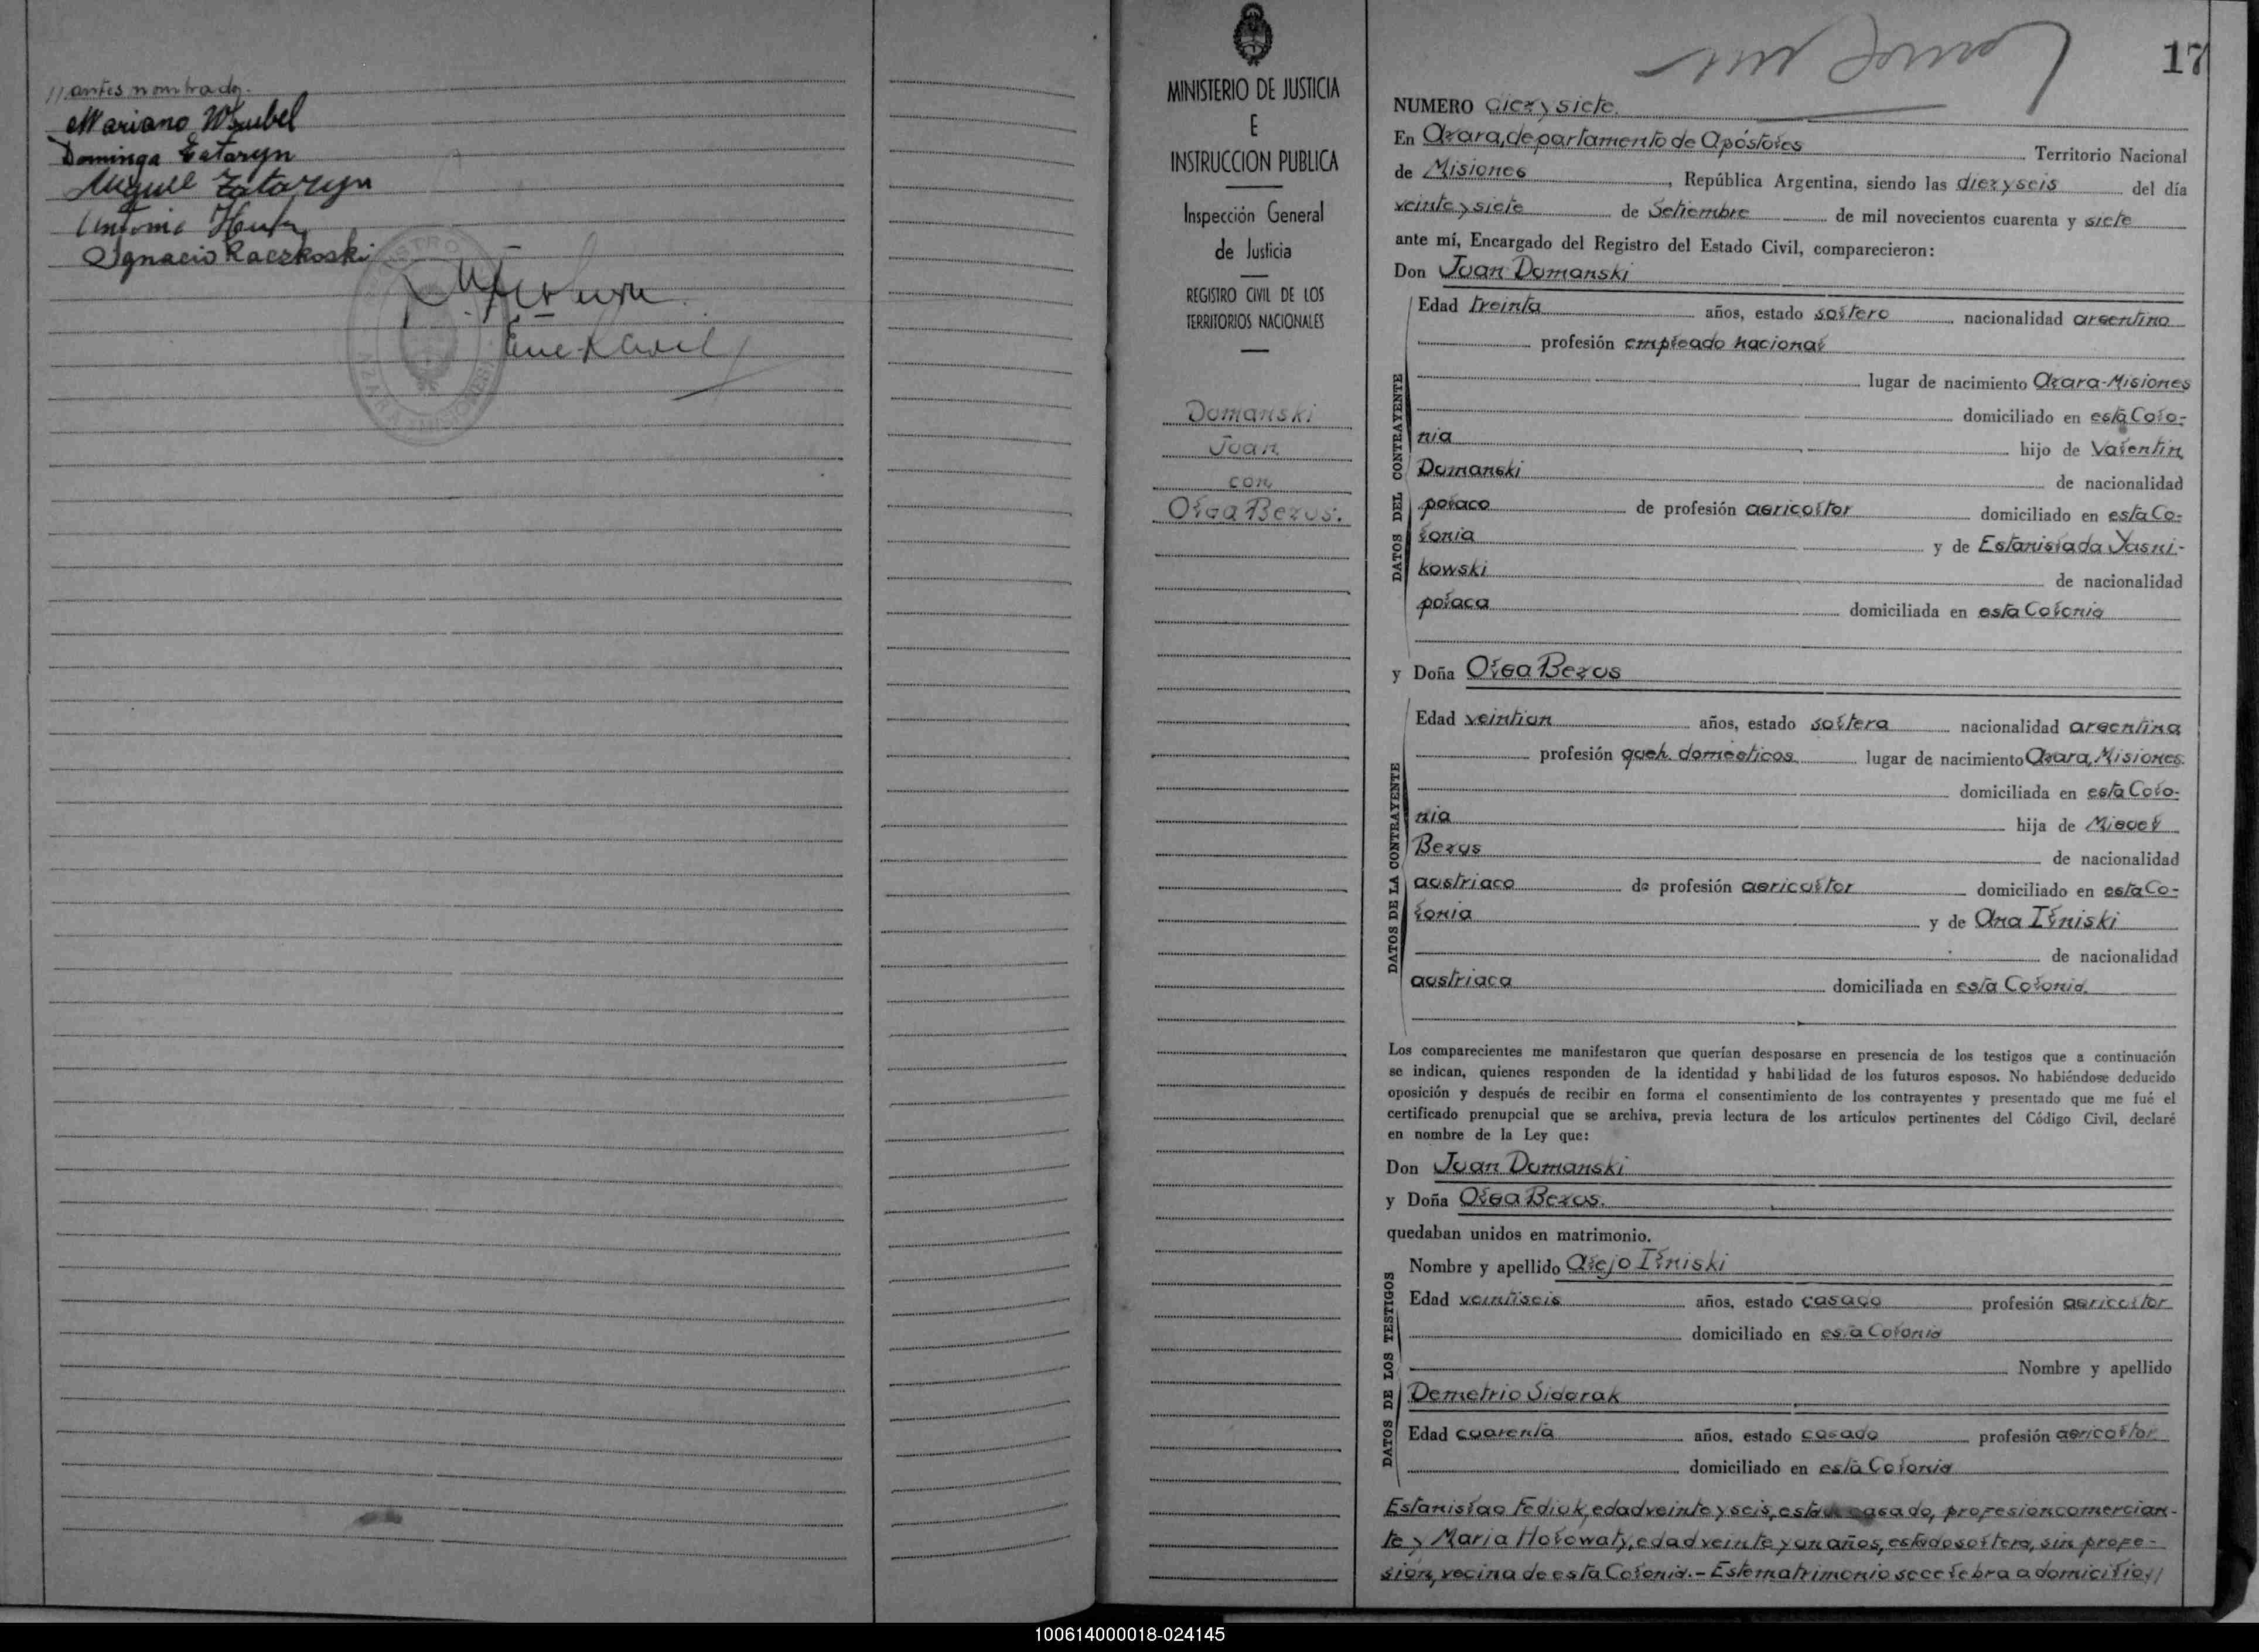 // antes nombrado.
Mariano Wrubel
Dominga Zataryn
Miguel Zataryn
Antonio
Ignacio Raczkoski
MINISTERIO DE JUSTICIA
E
INSTRUCCION PUBLICA
Inspección General
de Justicia
REGISTRO CIVIL DE LOS
TERRITORIOS NACIONALES
Domanski
Juan
con
Olga Bezus.
17
NUMERO diez y siete.
En Azara, departamento de Apóstoles Territorio Nacional
de Misiones, República Argentina, siendo las diez y seis del día
veinte y siete de Setiembre de mil novecientos cuarenta y siete
ante mí, Encargado del Registro del Estado Civil, comparecieron:
Don Juan Domanski
DATOS DEL CONTRAYENTE
Edad treinta años, estado soltero nacionalidad argentino
profesión empleado nacional
lugar de nacimiento Azara-Misiones
domiciliado en esta Colo-
nia hijo de Valentin
Domanski de nacionalidad
polaco de profesión agricoltor domiciliado en esta Co-
lonia y de Estanislada Yasni-
kowski de nacionalidad
polaca domiciliada en esta Colonia
y Doña Olga Bezus
DATOS DE LA CONTRAYENTE
Edad veintiun años, estado soltera nacionalidad argentina
profesión queh. domesticos lugar de nacimiento Azara, Misiones.
domiciliada en esta Colo-
nia hija de Miguel
Bezus de nacionalidad
austriaco de profesión agricultor domiciliado en esta Co-
lonia y de Ana Ilniski
de nacionalidad
austriaca domiciliada en esta Colonia.
Los comparecientes me manifestaron que querían desposarse en presencia de los testigos que a continuación
se indican, quienes responden de la identidad y habilidad de los futuros esposos. No habiéndose deducido
oposición y después de recibir en forma el consentimiento de los contrayentes y presentado que me fué el
certificado prenupcial que se archiva, previa lectura de los artículos pertinentes del Código Civil, declaré
en nombre de la Ley que:
Don Juan Domanski
y Doña Olga Bezus.
quedaban unidos en matrimonio.
DATOS DE LOS TESTIGOS
Nombre y apellido Alejo Ilniski
Edad veintiseis años, estado casado profesión agricultor
domiciliado en esta Colonia
Nombre y apellido
Demetrio Sidorak
Edad cuarenta años, estado casado profesión agricoltor
domiciliado en esta Colonia
Estanislao Fediuk, edad veinte y seis, estado casado, profesion comercian-
te y Maria Holowaty, edad veinte y un años, estado soltera, sin profe-
sión, vecina de esta Colonia.- Este matrimonio se celebra a domicilio //
100614000018-024145